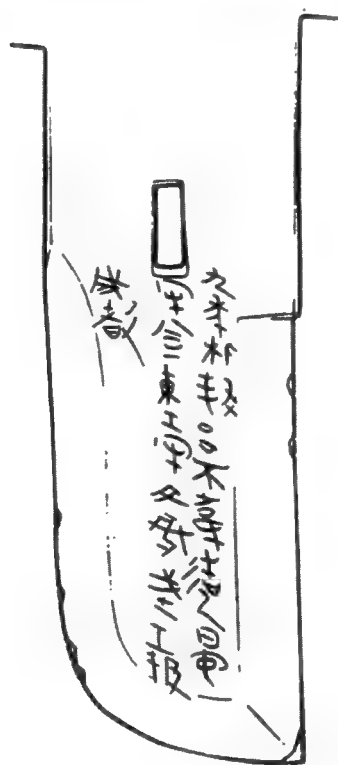 九年相邦呂不韋造蜀
守東工守文丞武工極
成都